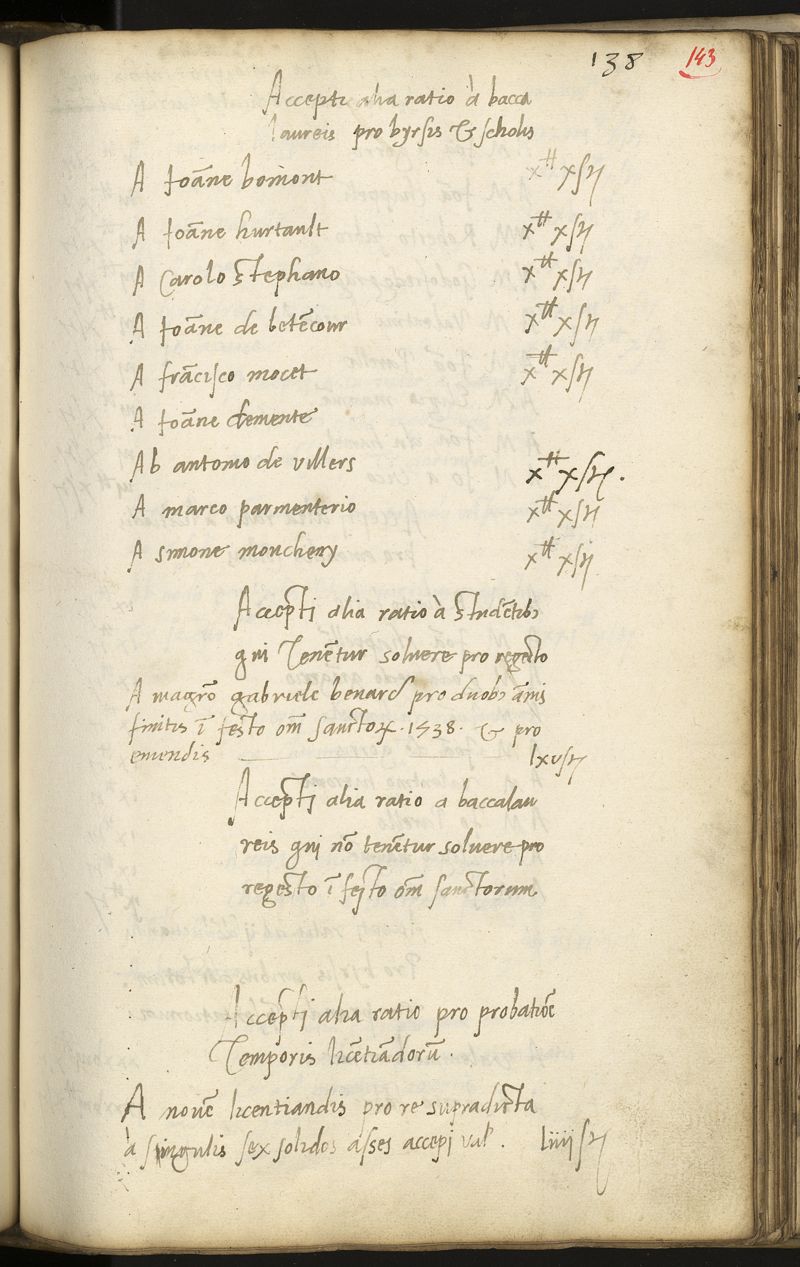 138 143
Accepti alia ratio à bacca
laureis pro byrsis & scholis
A Joāne bomont x₶ xſꝉ
A Joāne hurtault x₶ xſꝉ
A Carolo Stephano x₶ xſꝉ
A Joāne de betēcour x₶ xſꝉ
A frācisco mocet x₶ xſꝉ
A Joāne clemente
Ab antonio de villers x₶ xſꝉ.
A marco parmenterio x₶ xſꝉ
A simone moncheny x₶ xſꝉ
Accepti alia ratio à studētibꝫ
qui Tenētur solvere pro regesto
A magrō gabriele benard pro duobꝫ ānis
finitis ī festo om̄ sanctoꝝ . 1538 . & pro
emendis lxvſꝉ
Accepti alia ratio a baccalau
reis qui nō tenētur solvere pro
regesto ī festo om̄ sanctorum
Accepti alia ratio pro probatiōe
Temporis licētiādorū .
A novē licentiandis pro re supradicta
à singulis sex solidos asses accepi val . liiijſꝉ